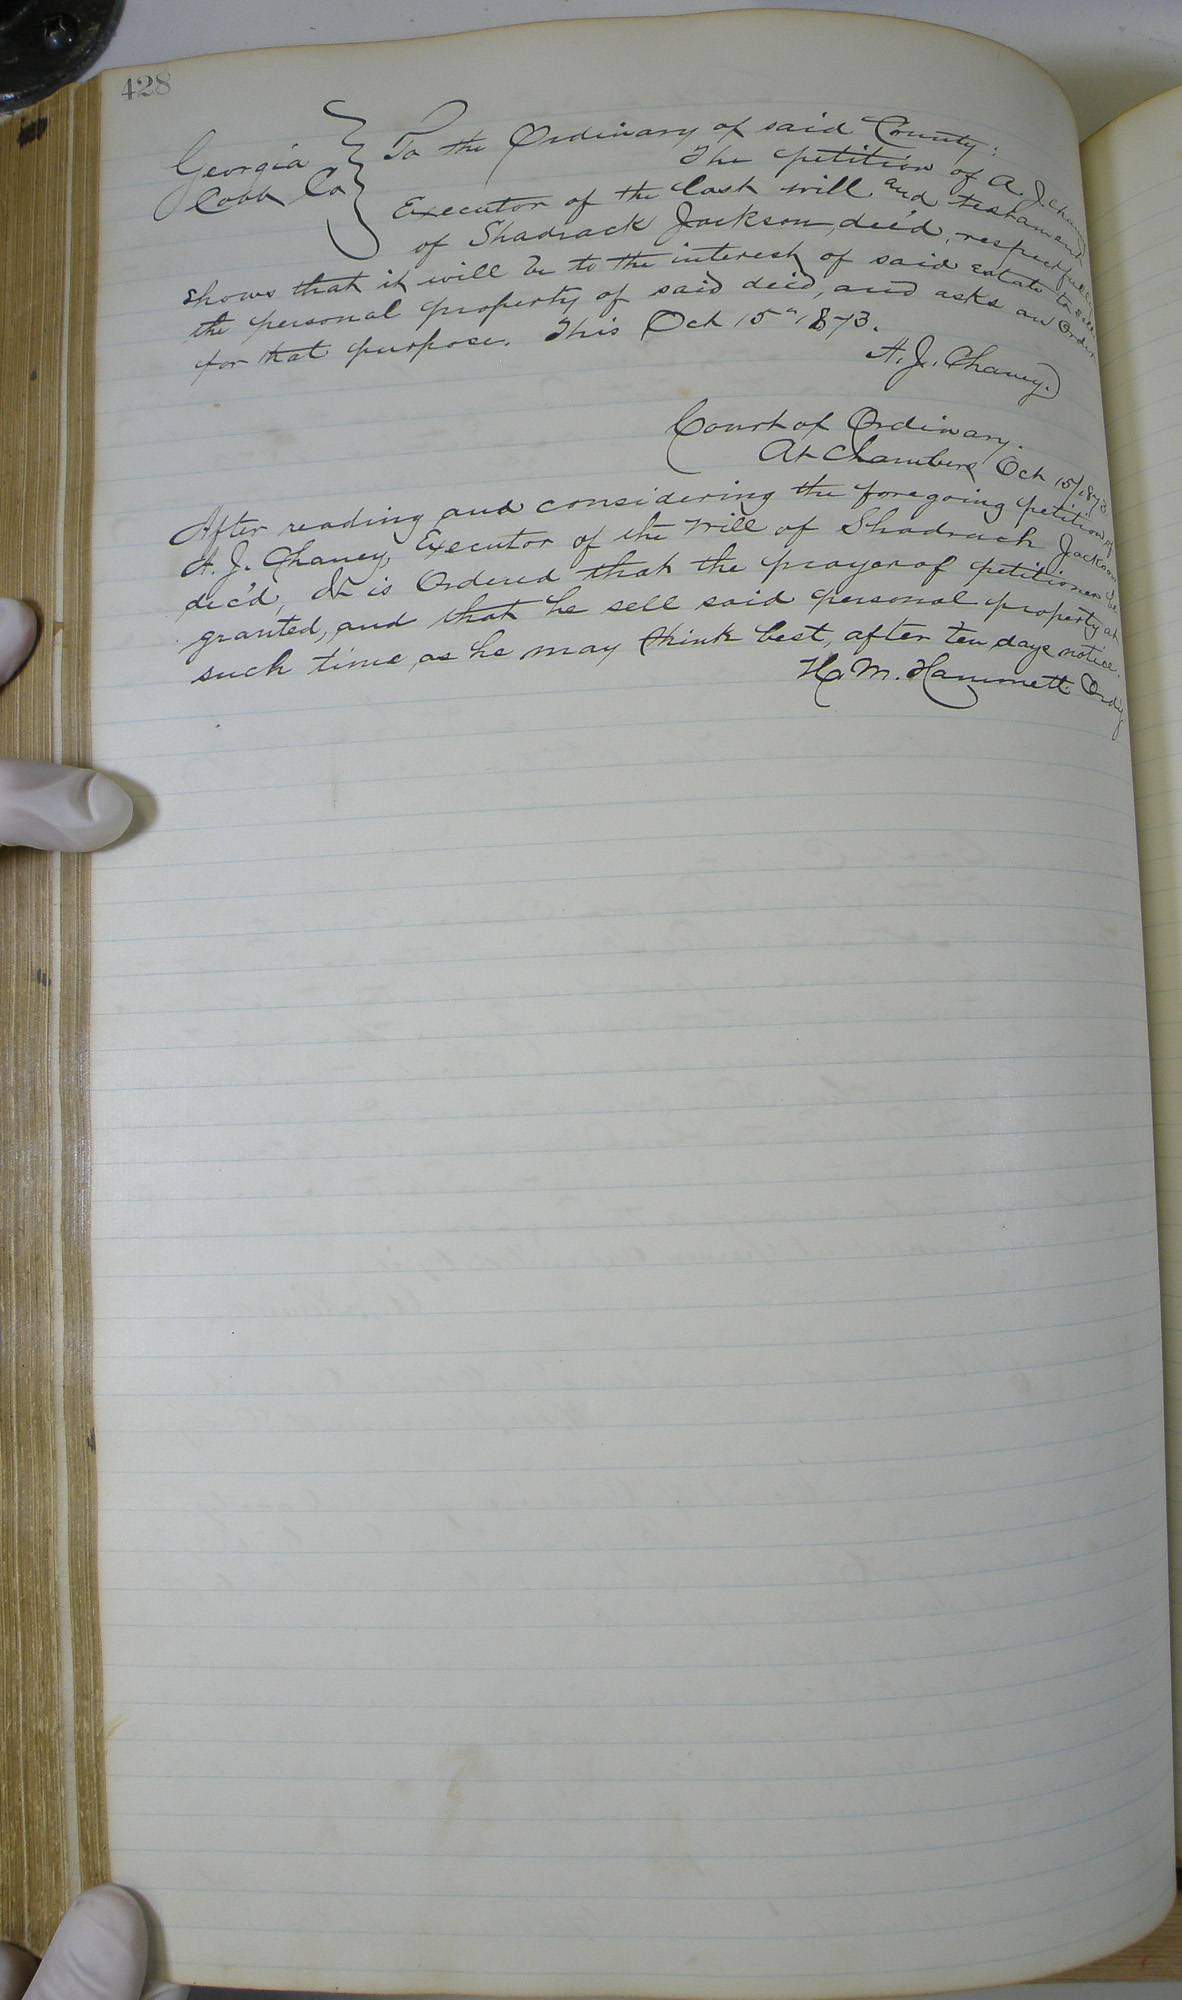 428
Georgia } To the Ordinary of said County:
Cobb Co } The petition of A. J. Chaney
Executor of the last will and testament
of Shadrack Jackson, dec'd, respectfully
shows that it will be to the interest of said estate to sell
the personal property of said dec'd, and asks an Order
for that purpose. This Oct 15th 1873.
A. J. Chaney.
Court of Ordinary.
At Chambers Oct 15/1873
After reading and considering the foregoing petition of
A. J. Chaney, Executor of the will of Shadrach Jackson
dec'd, It is Ordered that the prayer of petitioner be
granted, and that he sell said personal property at
such time, as he may think best, after ten days notice.
H. M. Hammett Ord'y